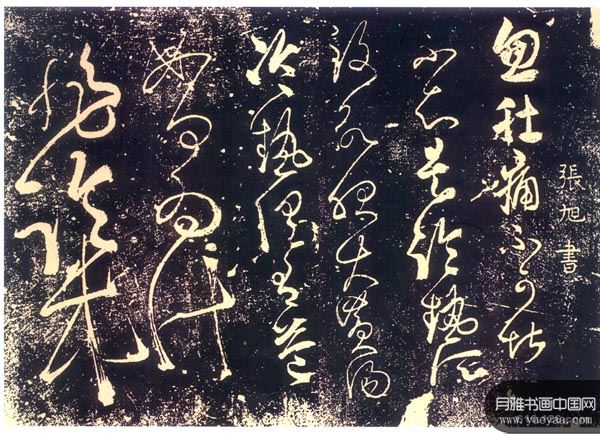 張旭書
忽肚痛不可堪
不知是冷熱所
致欲服大黃湯
冷熱俱有益
如何為計
非臨床
月雅书画中国网